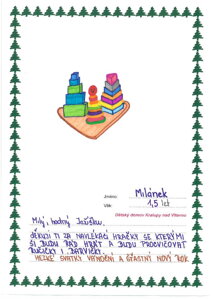 Jméno Milánek
Věk 1,5 let
Dětský domov Kralupy nad Vltavou
Milý, hodný Ježíšku,
DĚKUJI TI ZA NAVLÉKACÍ HRAČKY SE KTERÝMI
SI BUDU RÁD HRÁT A BUDU PROCVIČOVAT
RUČIČKY I BARVIČKY.
HEZKÉ SVÁTKY VÁNOČNÍ A ŠŤASTNÝ NOVÝ ROK